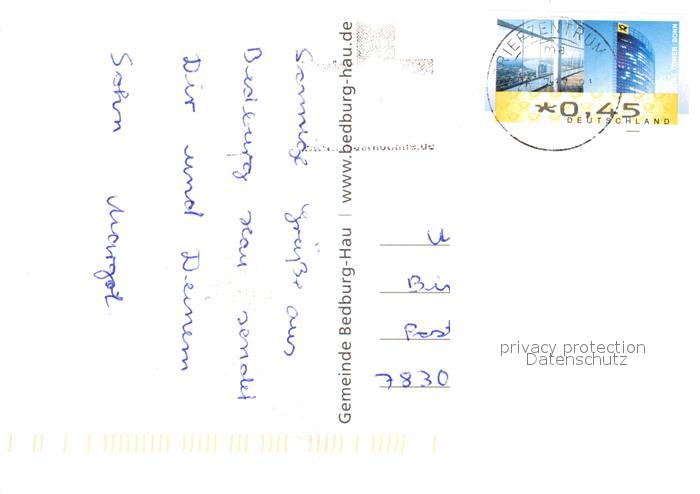 Sonnige Grüße aus
Bedburg Hau sendet
Dir und Deinem
Sohn Margot.
Gemeinde Bedburg-Hau | www.bedburg-hau.de
BRIEFZENTRUM
*0,45
DEUTSCHLAND
TOWER BONN
Bir
Post
7830
privacy protection
Datenschutz